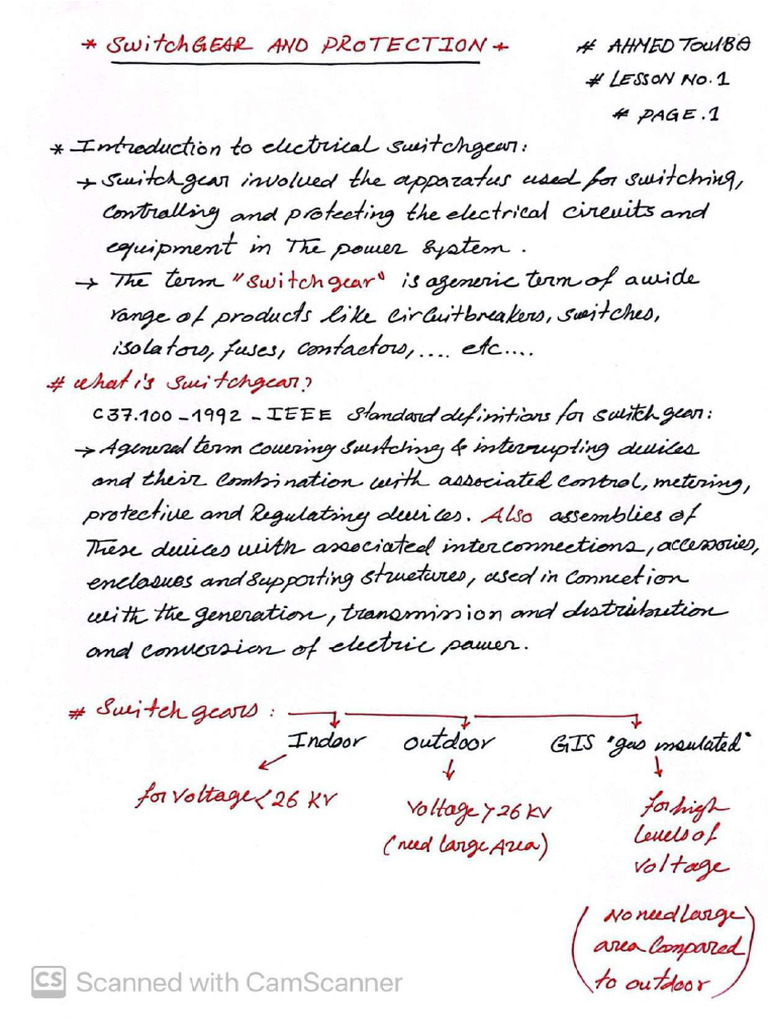 * SwitchGEAR AND PROTECTION *
# AHMED TouLBA
# LESSON No.1
# PAGE.1
* Introduction to electrical switchgear:
→ Switchgear involved the apparatus used for switching,
Controlling and protecting the electrical circuits and
equipment in The power system.
→ The term "Switchgear" is ageneric term of awide
range of products like circuitbreakers, switches,
isolators, fuses, contactors,.... etc....
# what is Switchgear?
C37.100-1992-IEEE Standard definitions for switchgear:
→ Ageneral term covering switching & interrupting devices
and their Combination with associated control, metering,
protective and Regulating devices. Also assemblies of
These devices with associated interconnections, accessories,
enclosues and supporting structures, used in connection
with the generation, transmission and distribution
and conversion of electric power.
# Switchgears:
Indoor outdoor GIS "gas insulated"
for voltage < 26 KV
voltage > 26 KV
(need large Area)
for high
levels of
voltage
(No need large
area Compared
to outdoor)
CS Scanned with CamScanner